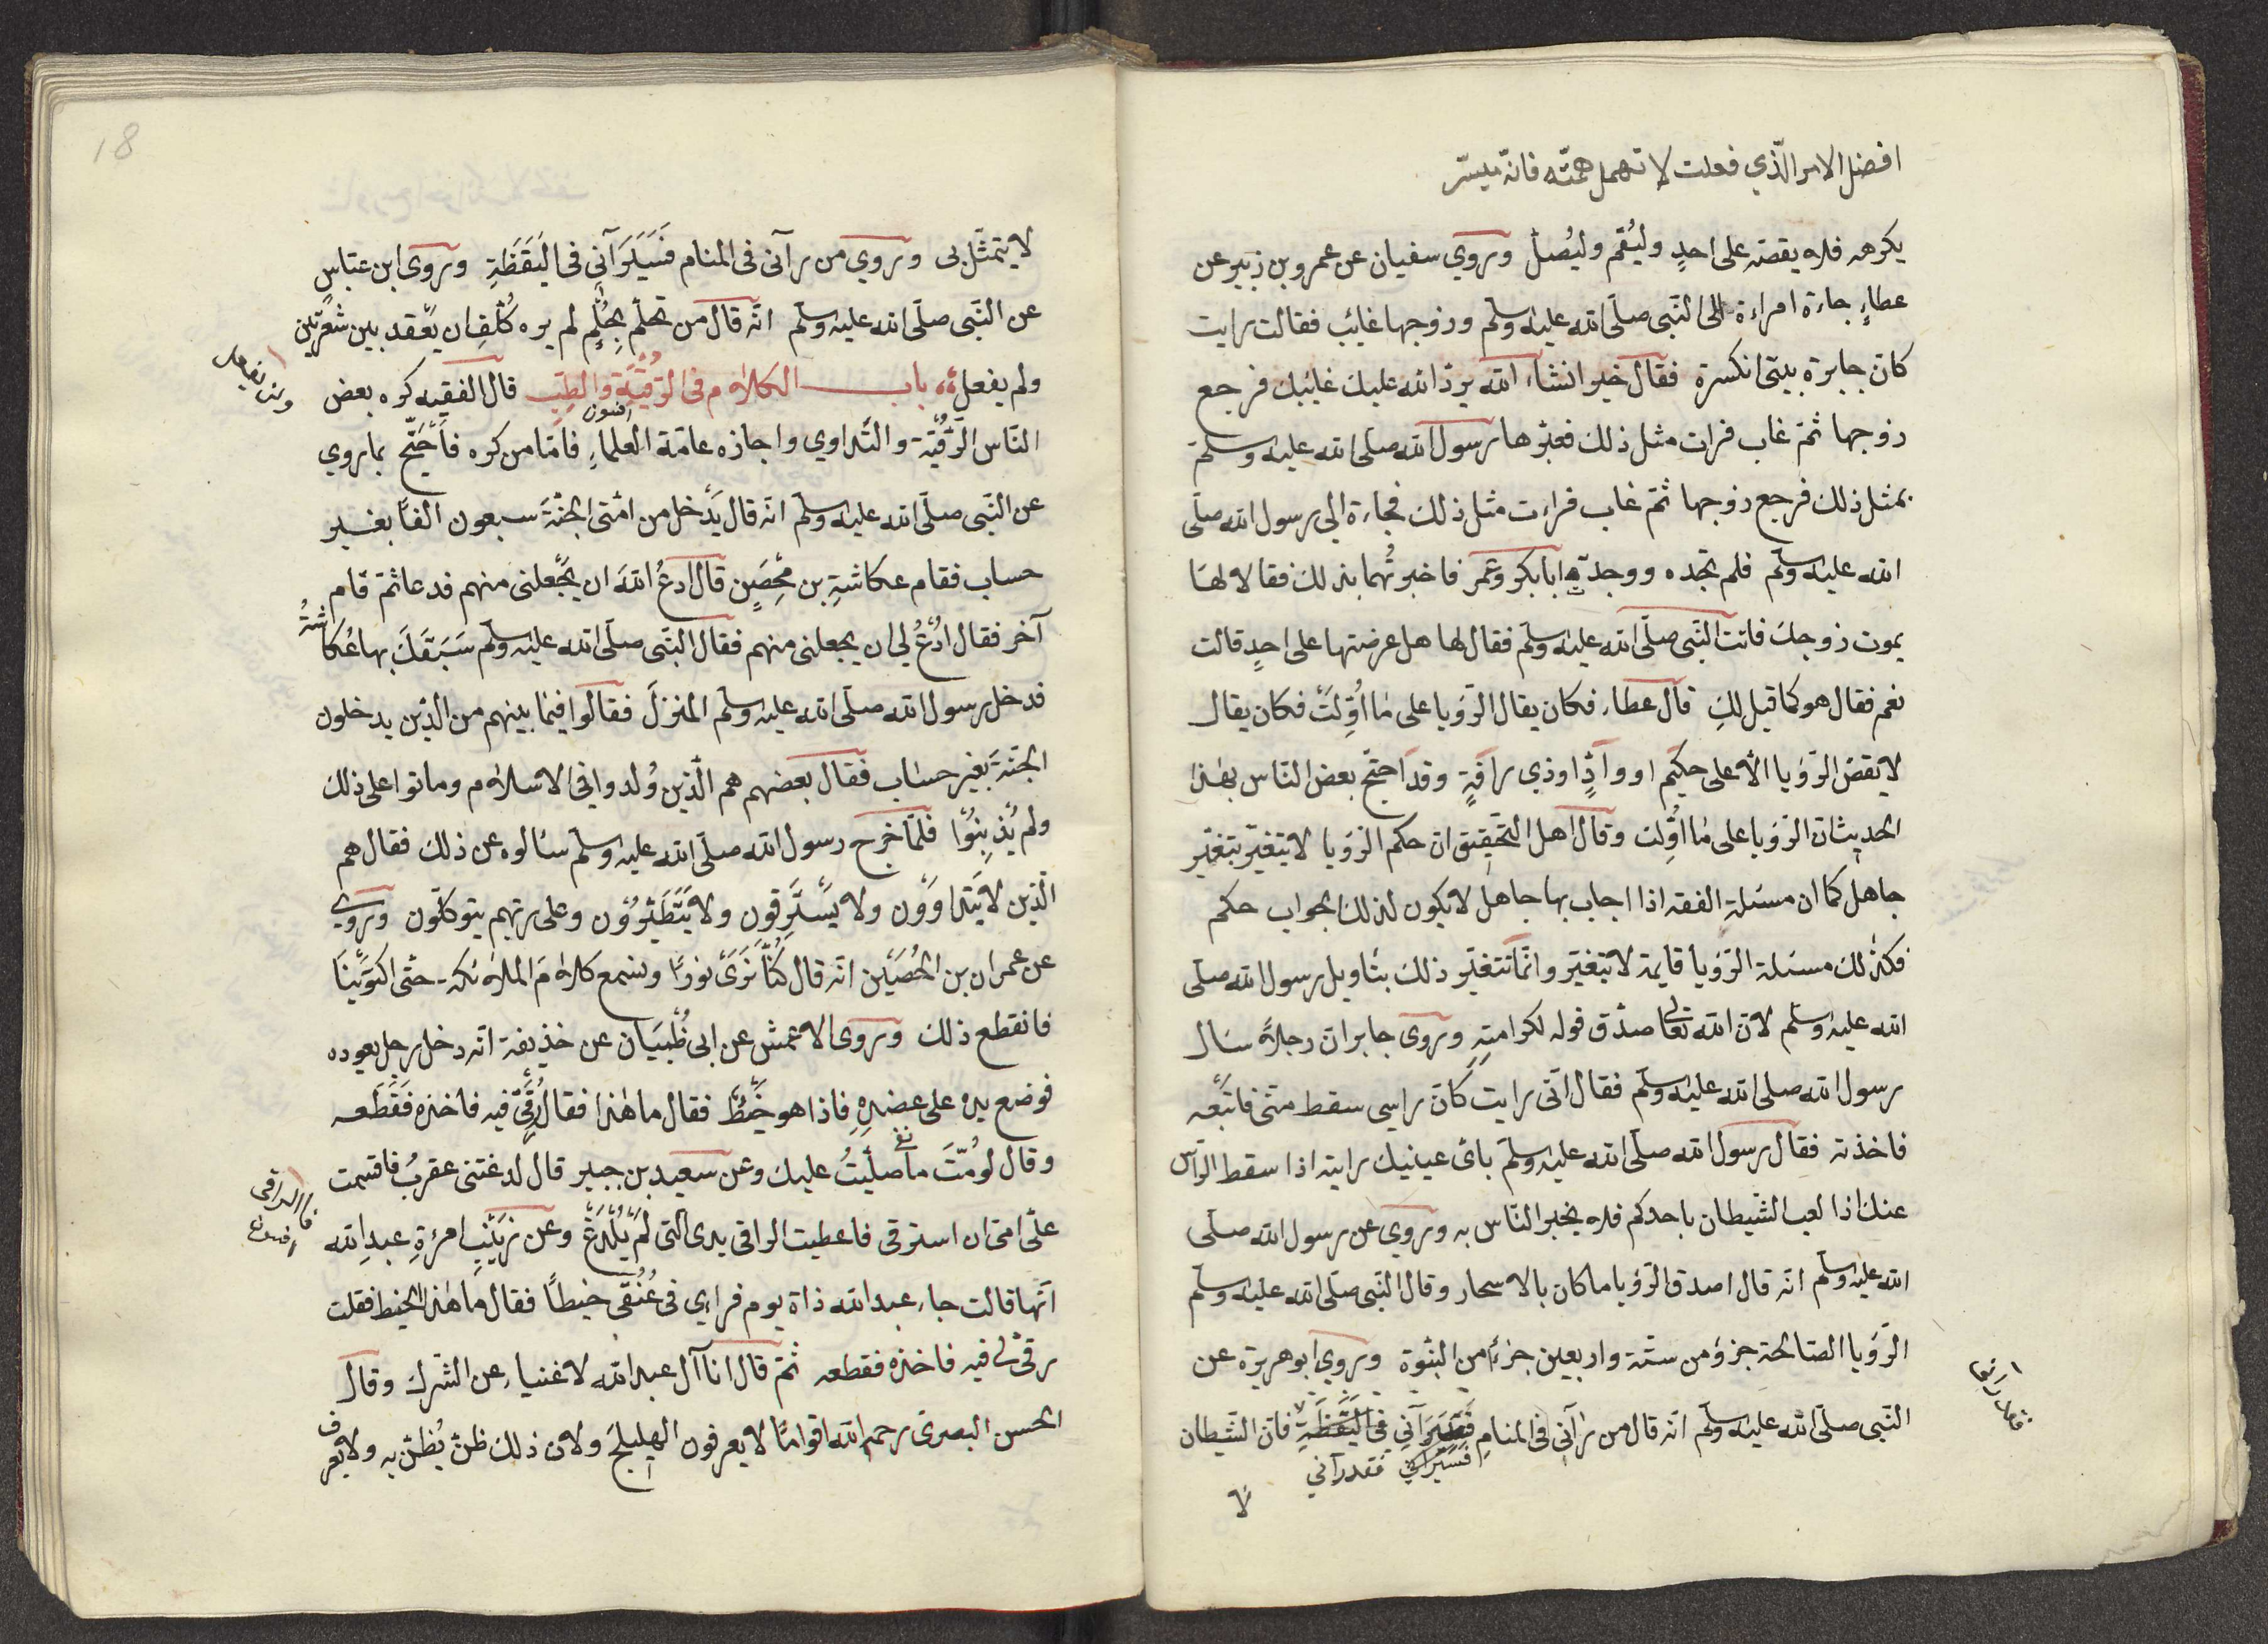 افضل الامر الّذي فعلت لا تهمل همّته فانّه ميسّر
يكرهه فلا يقصّه على احدٍ وليُقم وليُصلّ وروي سفيان عن عمرو بن زبير عن
عطاءٍ جاءة امراءة الى النّبى صلّى الله عليه وسلّم وزوجها غايب فقالت رايت
كانّ جايزة بيتى انكسرة فقال خير انشاء الله يردّ الله عليك غايبك فرجع
زوجها ثمّ غاب فرات مثل ذلك فعبّرها رسول الله صلّى الله عليه وسلّم
بمثل ذلك فرجع زوجها ثمّ غاب فراءت مثل ذلك فجاءة الي رسول الله صلّى
الله عليه وسلّم فلم تجده ووجدة ابا بكر وعمر فاخبرتُهما بذلك فقالا لها
يموت زوجك فاتت النّبى صلّى الله عليه وسلّم فقال لها هل عرضتها على احدٍ قالت
نعم فقال هو كما قيل لكِ قال عطاء فكان يقال الرّؤيا على ما اُوِّلَتْ فكان يقال
لا يقصّ الرّؤيا الّا على حكيم او وادٍّ او ذي رافةٍ وقد احتجّ بعض النّاس بهذا
الحديث انّ الرّؤيا على ما اوِّلت وقال اهل التّحقيق انّ حكم الرّؤيا لا يتغيّر بتغيّر
جاهل كما ان مسئلة الفقه اذا اجاب بها جاهل لا يكون لذلك الجواب حكم
فكذلك مسئلة الرّؤيا قايمة لا يتغيّر وانّما تتغيّر ذلك بتأويل رسول الله صلّى
الله عليه وسلّم لانّ الله تعالى صدّق قوله لكرامتهِ وروى جابر انّ رجلاً سال
رسول الله صلى الله عليه وسلّم فقال انّى رايت كانّ راسي سقط منّى فاتّبعْه
فاخذته فقال رسول الله صلّى الله عليه وسلّم بائ عينيك رايته اذا سقط الرّاس
عنك اذا لعب الشّيطان باحدكم فلا يخبر النّاس به وروي عن رسول الله صلّى
الله عليه وسلّم انّه قال اصدق الرّؤيا ما كان بالاسحار وقال النّبى صلّى الله عليه وسلّم
الرّؤيا الصّالحة جزؤ من ستّة واربعين جزءًا من النبوّة وروي ابو هريرة عن
النّبى صلّى الله عليه وسلّم انّه قال من رآنى فى المنامِ فَسَيَرَآنِي فى اليَقَظَةِ فانّ الشّيطان
فسيرانى فقد رآنى
لا
18
لا يتمثّل بى وروي من رآنى فى المنام فَسَيَرَآنِى فى اليَقَظَةِ وروى ابن عبّاسٍ
عن النّبى صلّى الله عليه وسلّم انّه قال من تحلّم بِحُلُمٍ لم يره كُلِّفَ ان يعقد بين شعرتين
ولم يفعل باب الكلام فى الرُّقْيَةِ والطِّبِ قال الفقيه كره بعض
النّاس الرُّقْيَة والتّداوي واجازه عامّة العلماءِ فامّا من كره فاَحْتَجّ بما روي
افسون
عن النّبى صلّى الله عليه وسلّم انّه قال يَدْخل من امّتى الجنّةَ سبعون الفًا بغير
حساب فقام عكاشةِ بن مِحْصَنٍ قال ادعُ اللهَ ان يجْعلنى منهم فدعا ثمّ قام
آخر فقال ادْعُ لي ان يجعلنى منهم فقال النّبى صلّى الله عليه وسلّم سَبَقَكَ بها عُكاشةُ
فدخل رسول الله صلّى الله عليه وسلّم المنزلَ فقالوا فيما بينهم من الذين يدخلون
الجنّةَ بغير حساب فقال بعضهم هم الّذين وُلدوا فى الاسلام وماتوا على ذلك
ولم يُذْنِبُوْا فلمّا خرج رسول الله صلّى الله عليه وسلّم سئالوه عن ذلك فقال هم
الّذين لا يَتَدَاوَوْن ولا يَسْتَرِقون ولا يَتَطَيَّرُوْن وعلى ربّهم يتوكّلون وروي
عن عمران بن الحُصَيْن انّه قال كُنّا نَرَىْ نورًا ونسمع كلامَ الملائكة حتّى اكتوَيْنَا
فانقطع ذلك وروى الاعمش عن ابى ظُبْيَان عن خذيفة انّه دخل رجل يعوده
فوضع يده على عضدِهِ فاذا هو خَيْطٌ فقال ما هذا فقال رُقِىَ فيه فاخذه فَقَطَعه
وقال لومُتَّ ما صلّيْتُ عليك وعن سعيد بن جبير قال لدغتنى عقربُ فاقسمت
علىّ امّى ان استرقى فاعطيت الراقى يدى الّتى لَمْ يُلْدَغْ وعن زَيْنَبِ امرءةِ عبدِ الله
انّها قالت جاء عبد الله ذاة يوم فراءى فى عُنُقى خيطًا فقال ما هذا الخيط فقلت
رقى لى فيه فاخذه فقطعه ثمّ قال انا آل عبد الله لاغنياء عن الشّرك وقال
الحسن البصرى رحم الله اقوامًا لا يعرفون الهليلجَ ولان ذلك ظنّ يُظنّ به ولا يعرف